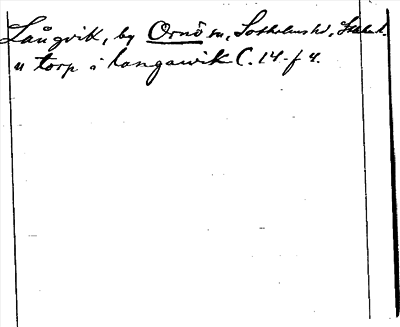 Långvik, by Ornö sn, Sotholms hd, Stockh.
u torp i langawik C. 14 f 4.